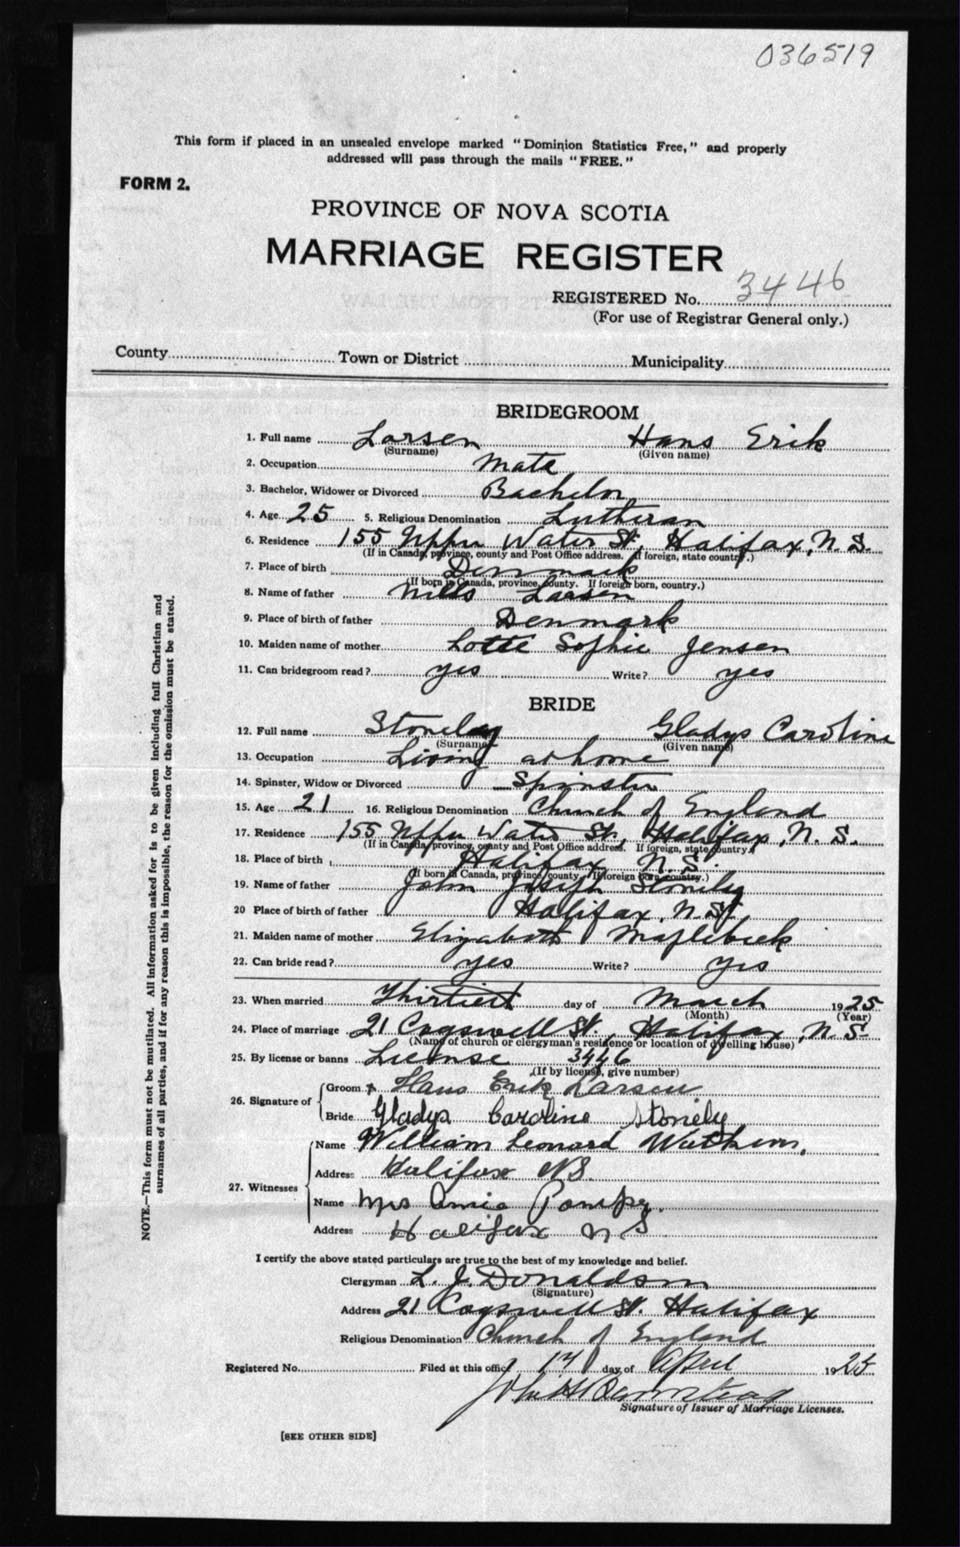 036519
This form if placed in an unsealed envelope marked "Dominion Statistics Free," and properly
addressed will pass through the mails "FREE."
FORM 2.
PROVINCE OF NOVA SCOTIA
MARRIAGE REGISTER
REGISTERED No. 3446
(For use of Registrar General only.)
County Town or District Municipality
BRIDEGROOM
1. Full name Larsen Hans Erik
(Surname) (Given name)
2. Occupation Mate
3. Bachelor, Widower or Divorced Bachelor
4. Age 25 5. Religious Denomination Lutheran
6. Residence 155 Upper Water St, Halifax, N. S.
(If in Canada, province, county and Post Office address. If foreign, state country.)
7. Place of birth Denmark
(If born in Canada, province, county. If foreign born, country.)
8. Name of father Larsen
9. Place of birth of father Denmark
10. Maiden name of mother Lotte Sophie Jensen
11. Can bridegroom read? yes Write? yes
BRIDE
12. Full name Stoneley Gladys Caroline
(Surname) (Given name)
13. Occupation Living at home
14. Spinster, Widow or Divorced Spinster
15. Age 21 16. Religious Denomination Church of England
17. Residence 155 Upper Water St, Halifax, N. S.
(If in Canada, province, county and Post Office address. If foreign, state country.)
18. Place of birth Halifax N. S.
(If born in Canada, province, county. If foreign born, country.)
19. Name of father John Joseph Stoneley
20 Place of birth of father Halifax, N. S.
21. Maiden name of mother Elizabeth
22. Can bride read? yes Write? yes
23. When married Thirtieth day of March 1925
(Month) (Year)
24. Place of marriage 21 Cogswell St. Halifax, N. S.
(Name of church or clergyman's residence or location of dwelling house)
25. By license or banns License 3446
(If by license, give number)
26. Signature of Groom x Hans Erik Larsen
Bride Gladys Caroline Stonely
27. Witnesses Name William Leonard Watkins.
Address Halifax NS.
Name Mrs Annie
Address Halifax N S
I certify the above stated particulars are true to the best of my knowledge and belief.
Clergyman L. J. Donaldson
(Signature)
Address 21 Cogswell St. Halifax
Religious Denomination Church of England
Registered No. Filed at this office 17 day of April 1925
Signature of Issuer of Marriage Licenses.
[SEE OTHER SIDE]
NOTE.—This form must not be mutilated. All information asked for is to be given including full Christian and
surnames of all parties, and if for any reason this is impossible, the reason for the omission must be stated.